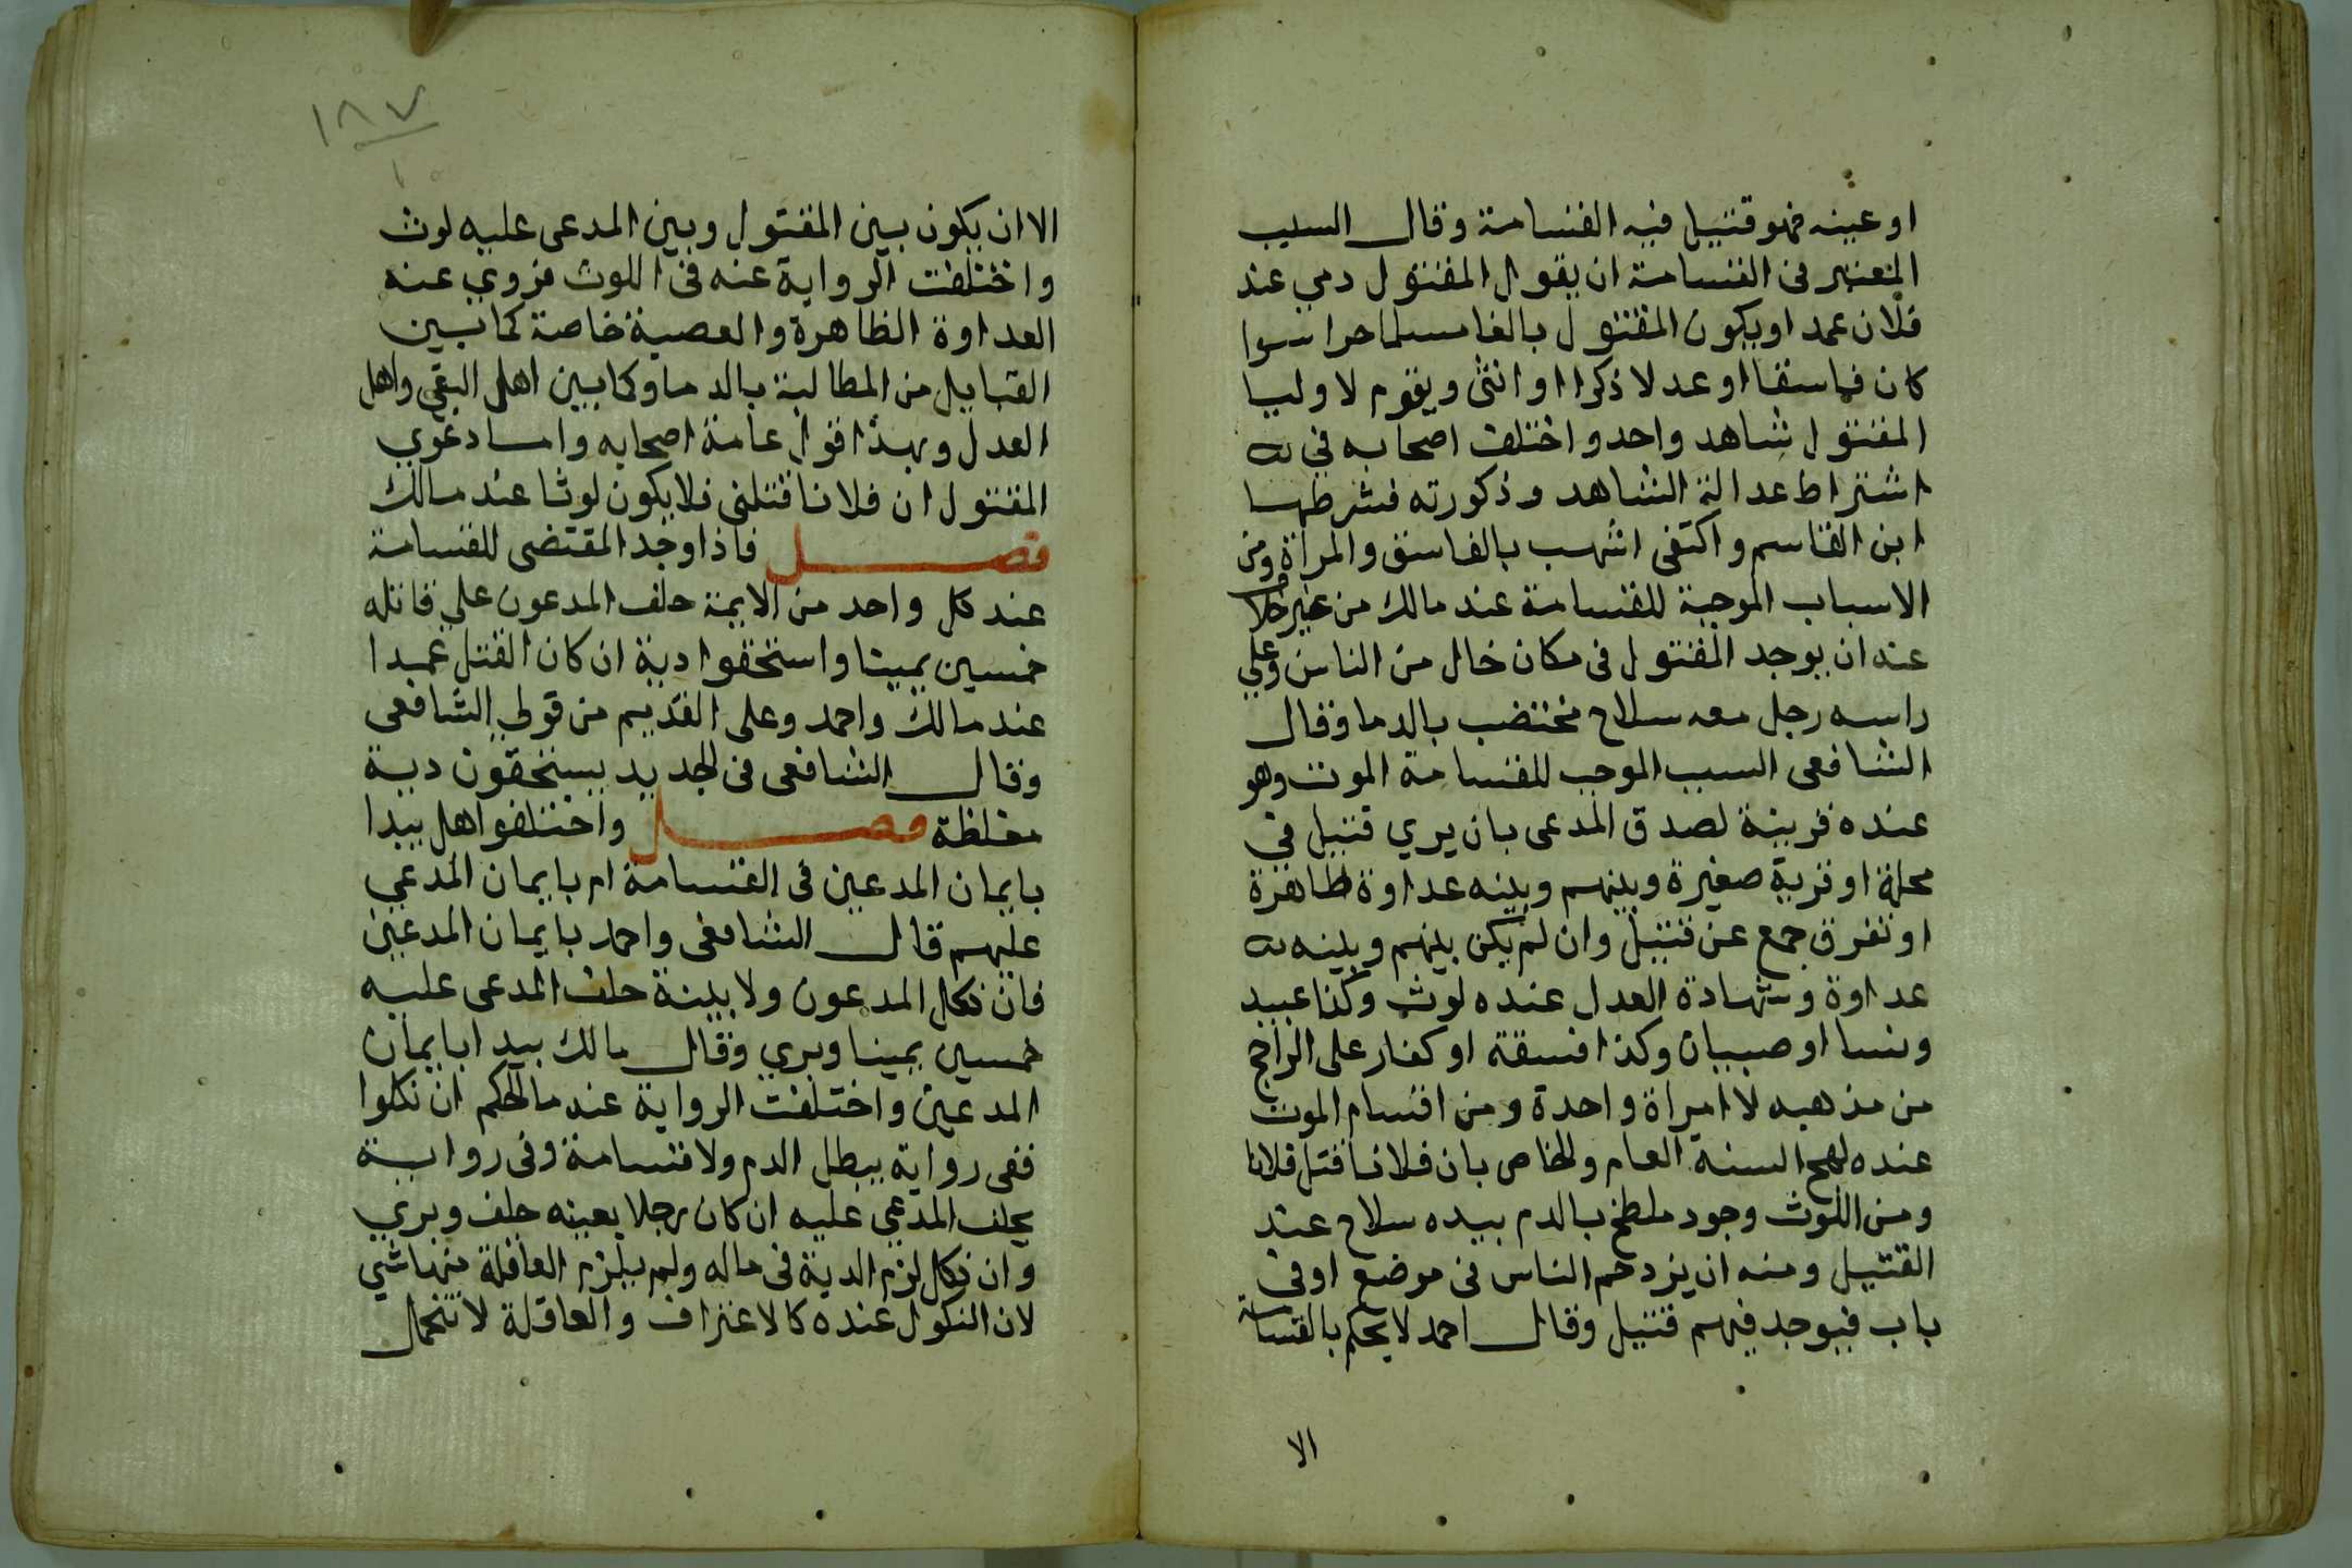 او عينه فهو قتيل فيه القسامة وقال السبب
المعتبر فى القسامة ان يقول المقتول دمي عند
فلان عمدا ويكون المقتول بالغا مسلما حرا سوا
كان فاسقا او عدلا ذكرا او انثى ويقوم لاوليا
المقتول شاهد واحد واختلف اصحابه في
اشتراط عدالة الشاهد وذكورته فشرطها
ابن القاسم واكتفى اشهب بالفاسق والمراة ومن
الاسباب الموجبة للقسامة عند مالك من غير خلاف
عنه ان يوجد المقتول فى مكان خال من الناس وعلي
راسه رجل معه سلاح مختضب بالدما وقال
الشافعى السبب الموجب للقسامة الموت وهو
عنده قرينة لصدق المدعى بان يري قتيل في
محلة او قرية صغيرة وبينهم وبينه عداوة ظاهرة
او تفرق جمع عن قتيل وان لم يكن بينهم وبينه
عداوة وشهادة العدل عنده لوث وكذا عبيد
ونسا او صبيان وكذا فسقة او كفار على الراجح
من مذهبه لا امراة واحدة ومن اقسام الموت
عنده لهج السنة العام والخاص بان فلانا قتل فلانا
ومن اللوث وجود ملطخ بالدم بيده سلاح عند
القتيل ومنه ان يزدحم الناس فى موضع او في
باب فيوجد فيهم قتيل وقال احمد لا يحكم بالقسامة
الا
١٨٧
الا ان يكون بين المقتول وبين المدعى عليه لوث
واختلفت الرواية عنه فى اللوث فروي عنه
العداوة الظاهرة والعصبية خاصة كما بين
القبايل من المطالبة بالدما وكما بين اهل البغي واهل
العدل وبهذا قول عامة اصحابه واما دعوي
المقتول ان فلانا قتلنى فلا يكون لوثا عند مالك
فصل فاذا وجد المقتضى للقسامة
عند كل واحد من الايمة حلف المدعون علي قاتله
خمسين يمينا واستحقوا دية ان كان القتل عمدا
عند مالك واحمد وعلى القديم من قولي الشافعى
وقال الشافعى فى الجديد يستحقون دية
مغلظة فصل واختلفوا هل يبدا
بايمان المدعين فى القسامة ام بايمان المدعي
عليهم قال الشافعى واحمد بايمان المدعين
فان نكل المدعون ولا بينة حلف المدعى عليه
خمسين يمينا وبري وقال مالك يبدا بايمان
المدعين واختلفت الرواية عنه ما الحكم ان نكلوا
ففى رواية يبطل الدم ولا قسامة وفى رواية
يحلف المدعي عليه ان كان رجلا بعينه حلف وبري
وان نكل لزم الدية فى ماله ولم يلزم العاقلة منها شي
لان النكول عنده كالاعتراف والعاقلة لا تتحمل